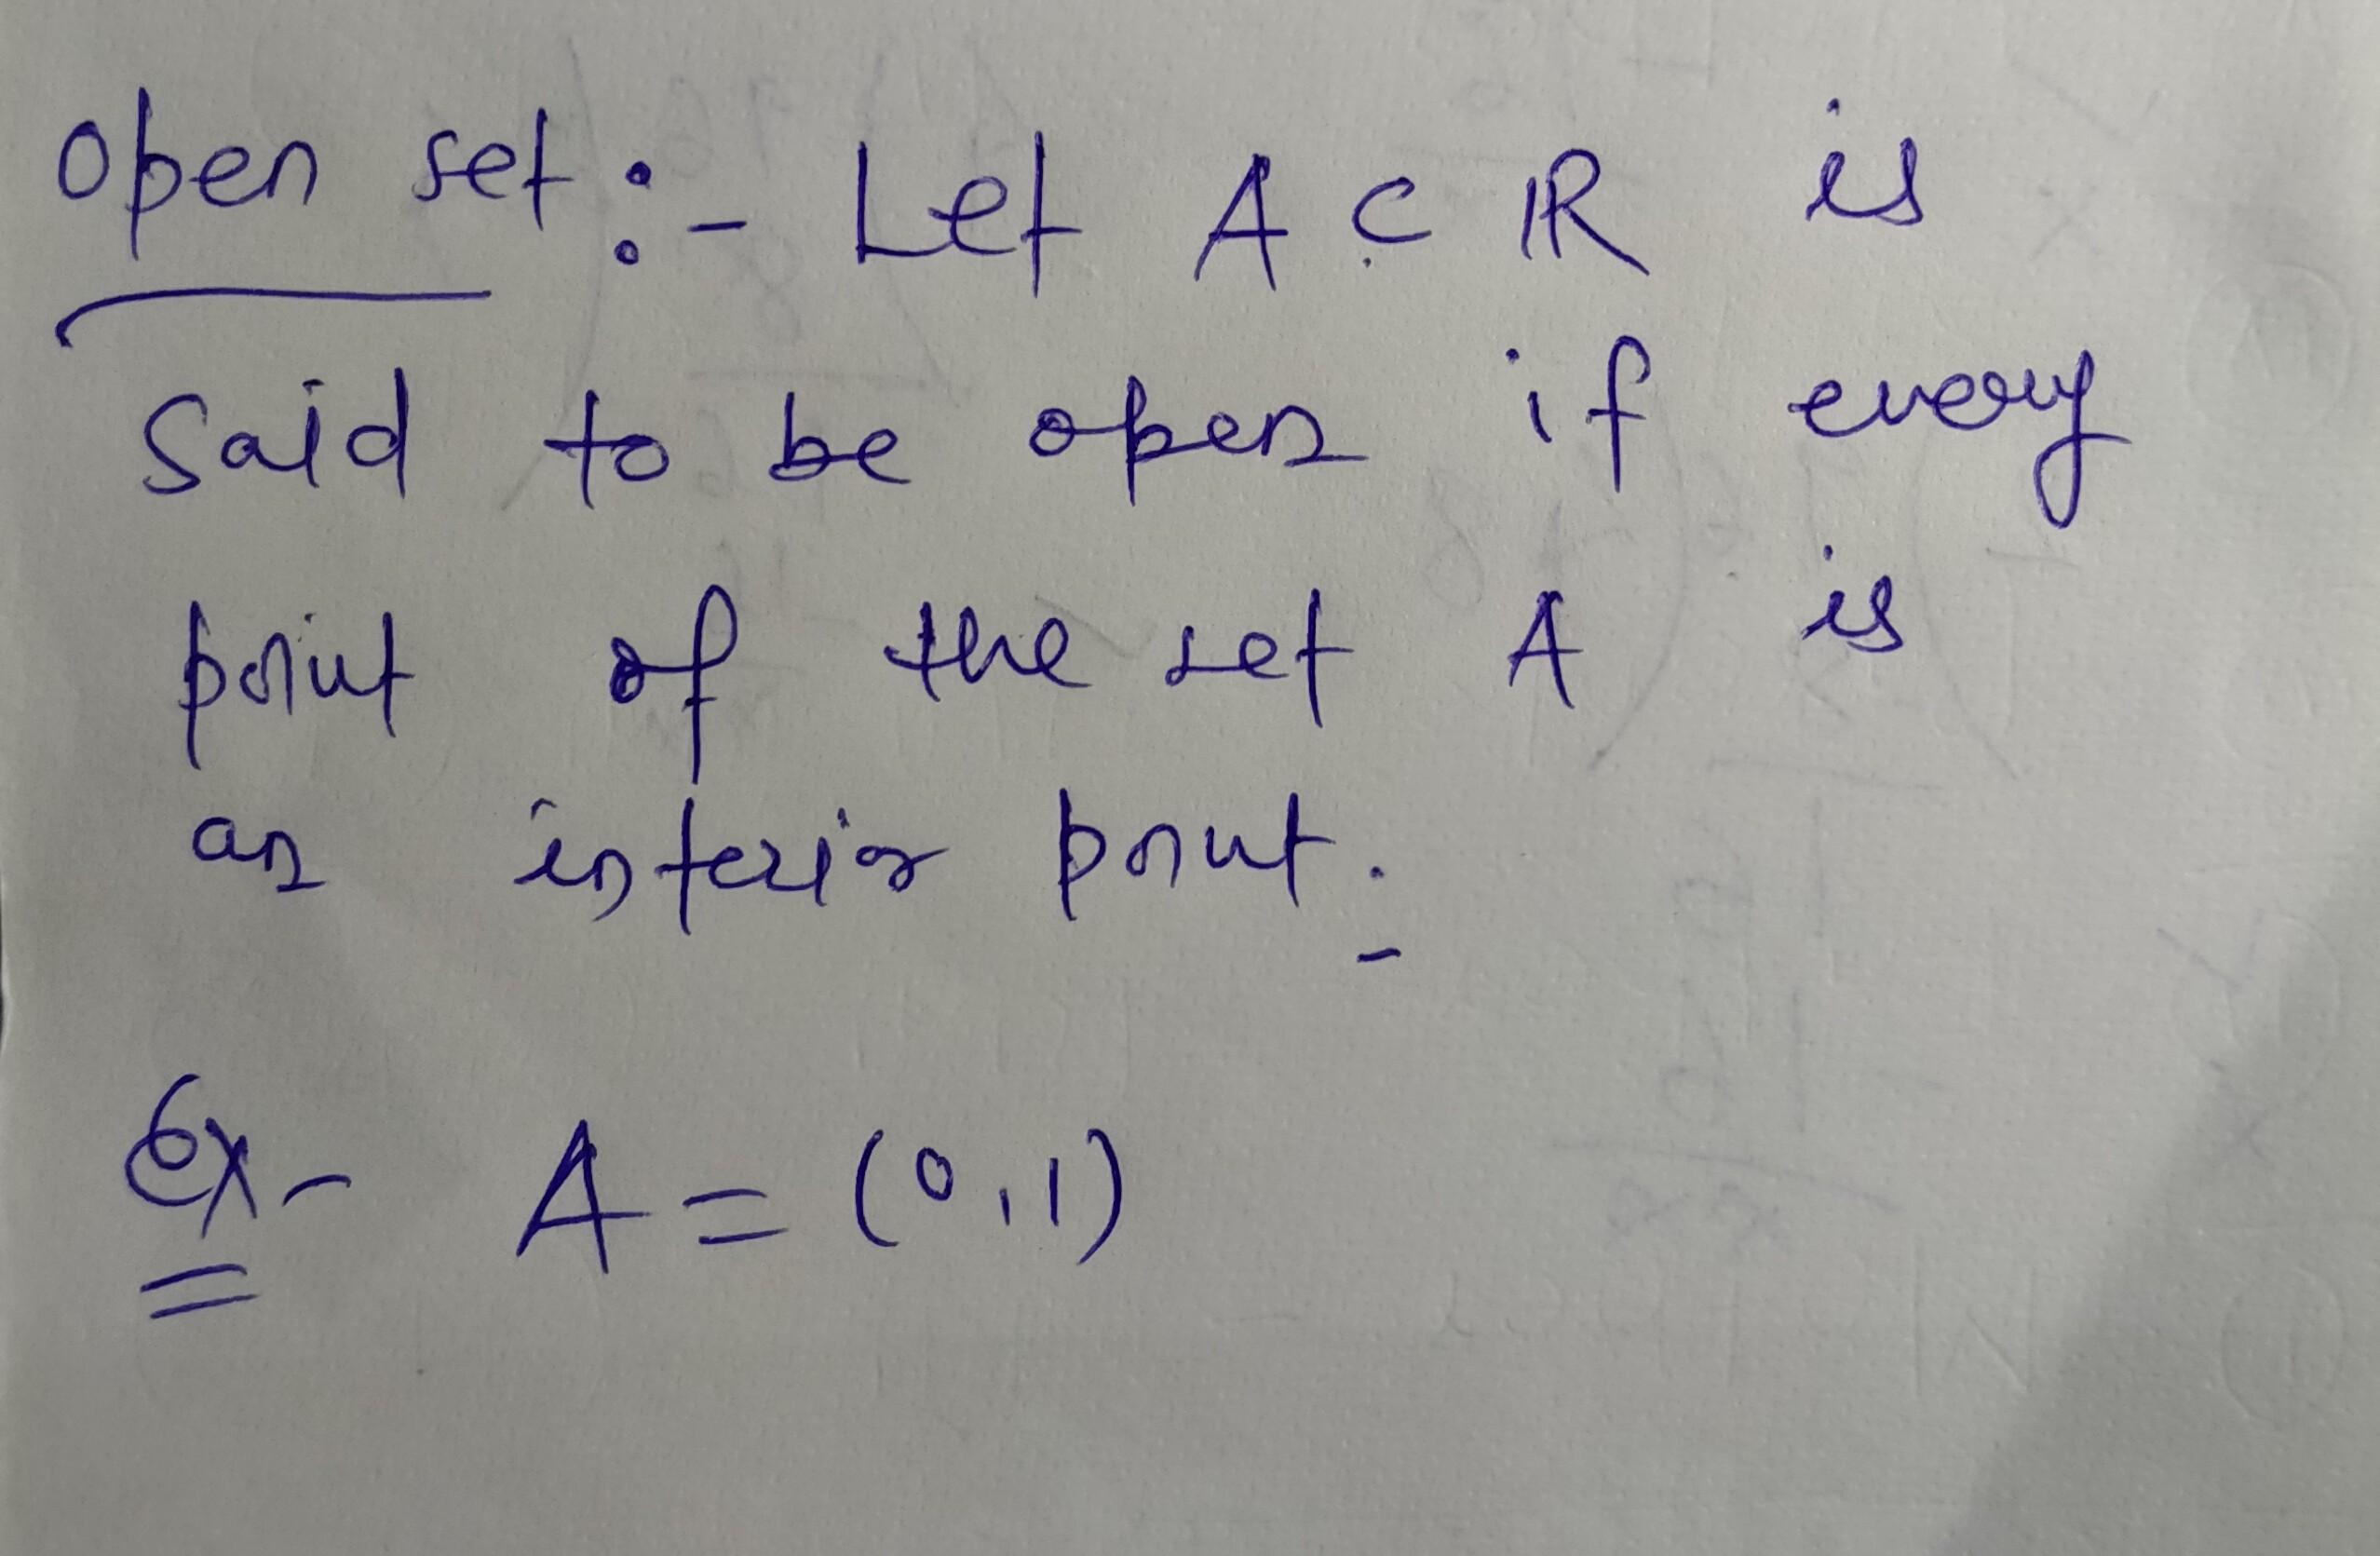 open set :- Let A ⊂ ℝ is
said to be open if every
point of the set A is
an interior point.
Ex- A = (0,1)